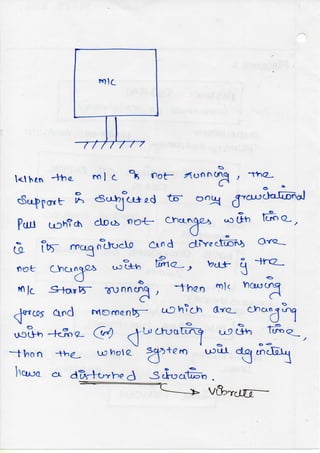 m/c
When the m/c is not running, the
support is subjected to only gravitational
Pull which does not changes with time,
ie its magnitude and directions are
not changes with time, but if the
m/c starts running, then m/c having
forces and moments which are changing
with time (or) fluctuating with time,
then the whole system will definetely
have a disturbed situation.
Vibrate